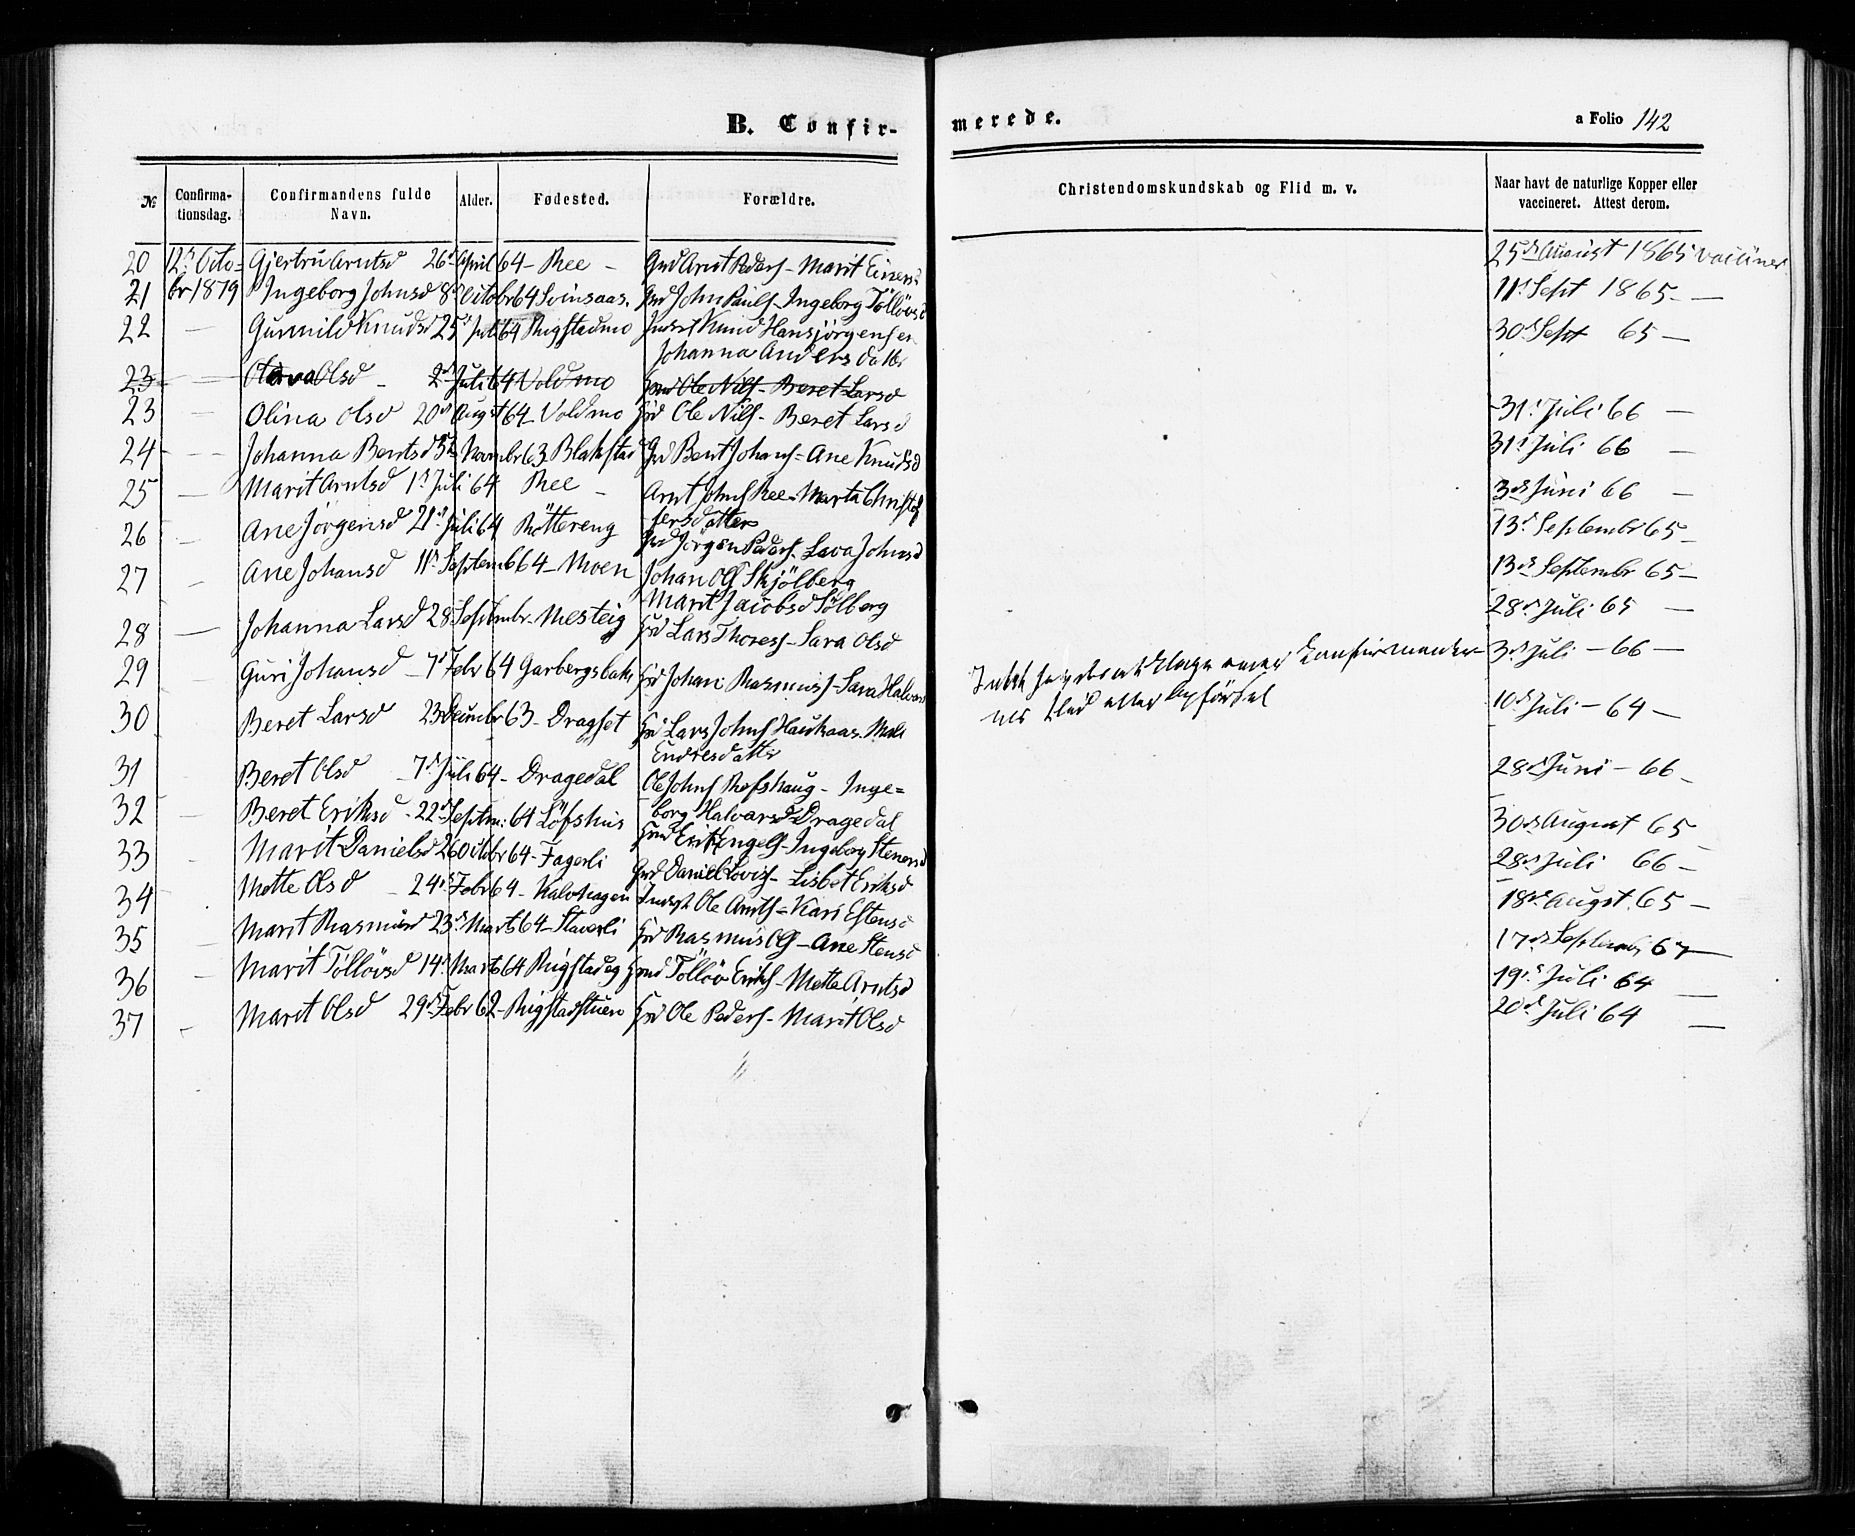 B. Confir-
merede.
a Folio 142
№
Confirma-
tionsdag.
Confirmandens fulde
Navn.
Alder.
Fødested.
Forældre.
Christendomskundskab og Flid m. v.
Naar havt de naturlige Kopper eller
vaccineret. Attest derom.
20 12te Octo- Gjertru Arntsd 26d April 64 - Ree - Gmd Arnt Peders - Marit Einersd 25de August 1865 vacciner
21 br 1879 Ingeborg Johnsd 8d Octobr 64 Svinsaas. Gmd John Pauls - Ingeborg Töllövsd 11te Sept 1865 - —
22 — Gunnild Knudsd 25d Juli 64 Rigstadmo Inderst Knud Hansjörgensen 30d Sept 65 —
Johanna Andersdatter
23 — Olsd - 2d Juli 64 Voldmo Hmd Ole Nils - Beret Larsd
23 — Olina Olsd 20d Augst 64 - Voldmo Hmd Ole Nils - Beret Larsd 31te Juli 66 —
24 — Johanna Bentsd 5d Novmbr 63 Blakstad Gmd Bent Johans - Ane Knudsd 31te Juli 66 —
25 — Marit Arntsd 1ste Juli 64 Ree - Arnt Johns Ree - Marta Christof 3de Juni 66 —
fersdatter
26 — Ane Jörgensd 21d Juli 64 Röttereng Hmd Jörgen Peders - Lava Johnsd 13d Septembr 65 -
27 — Ane Johansd 11te Septemb 64 - Moen Johan Ols Skjölberg 13de Septembr 65 -
Marit Jacobsd Sölberg
28 — Johanna Larsd 28 Septembr - Mesteig Hmd Lars Thoress - Sara Olsd 28de Juli 65 —
29 — Guri Johansd - 7d Febr 64 Garbergsbak Hmd Johan Rasmus - Sara Halvars 3d Juli - 66 —
Intet haves at klage over Confirmander-
nes Flid eller Opförsel
30 Beret Larsd 23 Decmbr 63 - Dragset Hmd Lars Johns Haukaas. Mali 10d Juli - 64 —
Endresdatter
31 Beret Olsd - 7d Juli 64 - Dragedal Ole Johns Refshaug - Inge= 28d Juni - 66 -
borg Halvarsd Dragedal
32 - Beret Eriksd - 22d Septm: 64 Löfshus Hmd Erik Engels - Ingeborg Stenersd 30de August 65
33 - Marit Danielsd 26 Octobr 64 - Fagerli Gmd Daniel Lovis - Lisbet Eriksd 28de Juli 66 -
34 - Mette Olsd - 24d Febr 64 - Kalvhagen Inderst Ole Arnts = Kari Estensd 18de Augst. 65 -
35 - Marit Rasmusd 23d Marts 64 - Staverli Hmd Rasmus Ols - Ane Stensd 17de Septembr 67 —
36 - Marit Töllövsd 14d Marts 64 Rigstadeg Hmd Töllöv Eriks - Mette Arntsd 19d Juli 64 —
37 - Marit Olsd 29d Febr 62 - Rigstadstuen Hmd Ole Peders - Marit Olsd 20d Juli 64 —